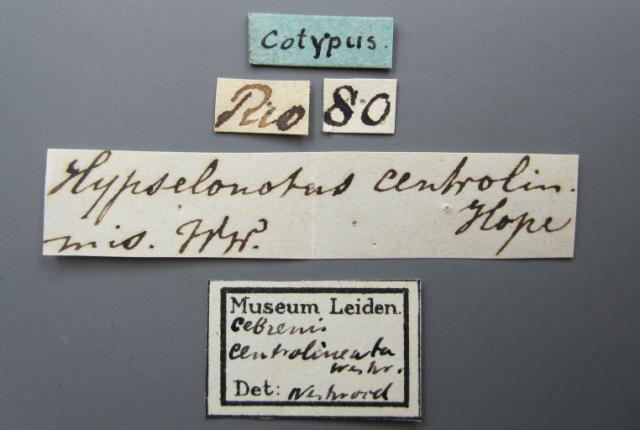 Cotypus.
Rio 80
Hypselonotus centrolin.
Hope
mis. WW.
Museum Leiden.
Cebrenis
centrolineata
Westw.
Det: Westwood